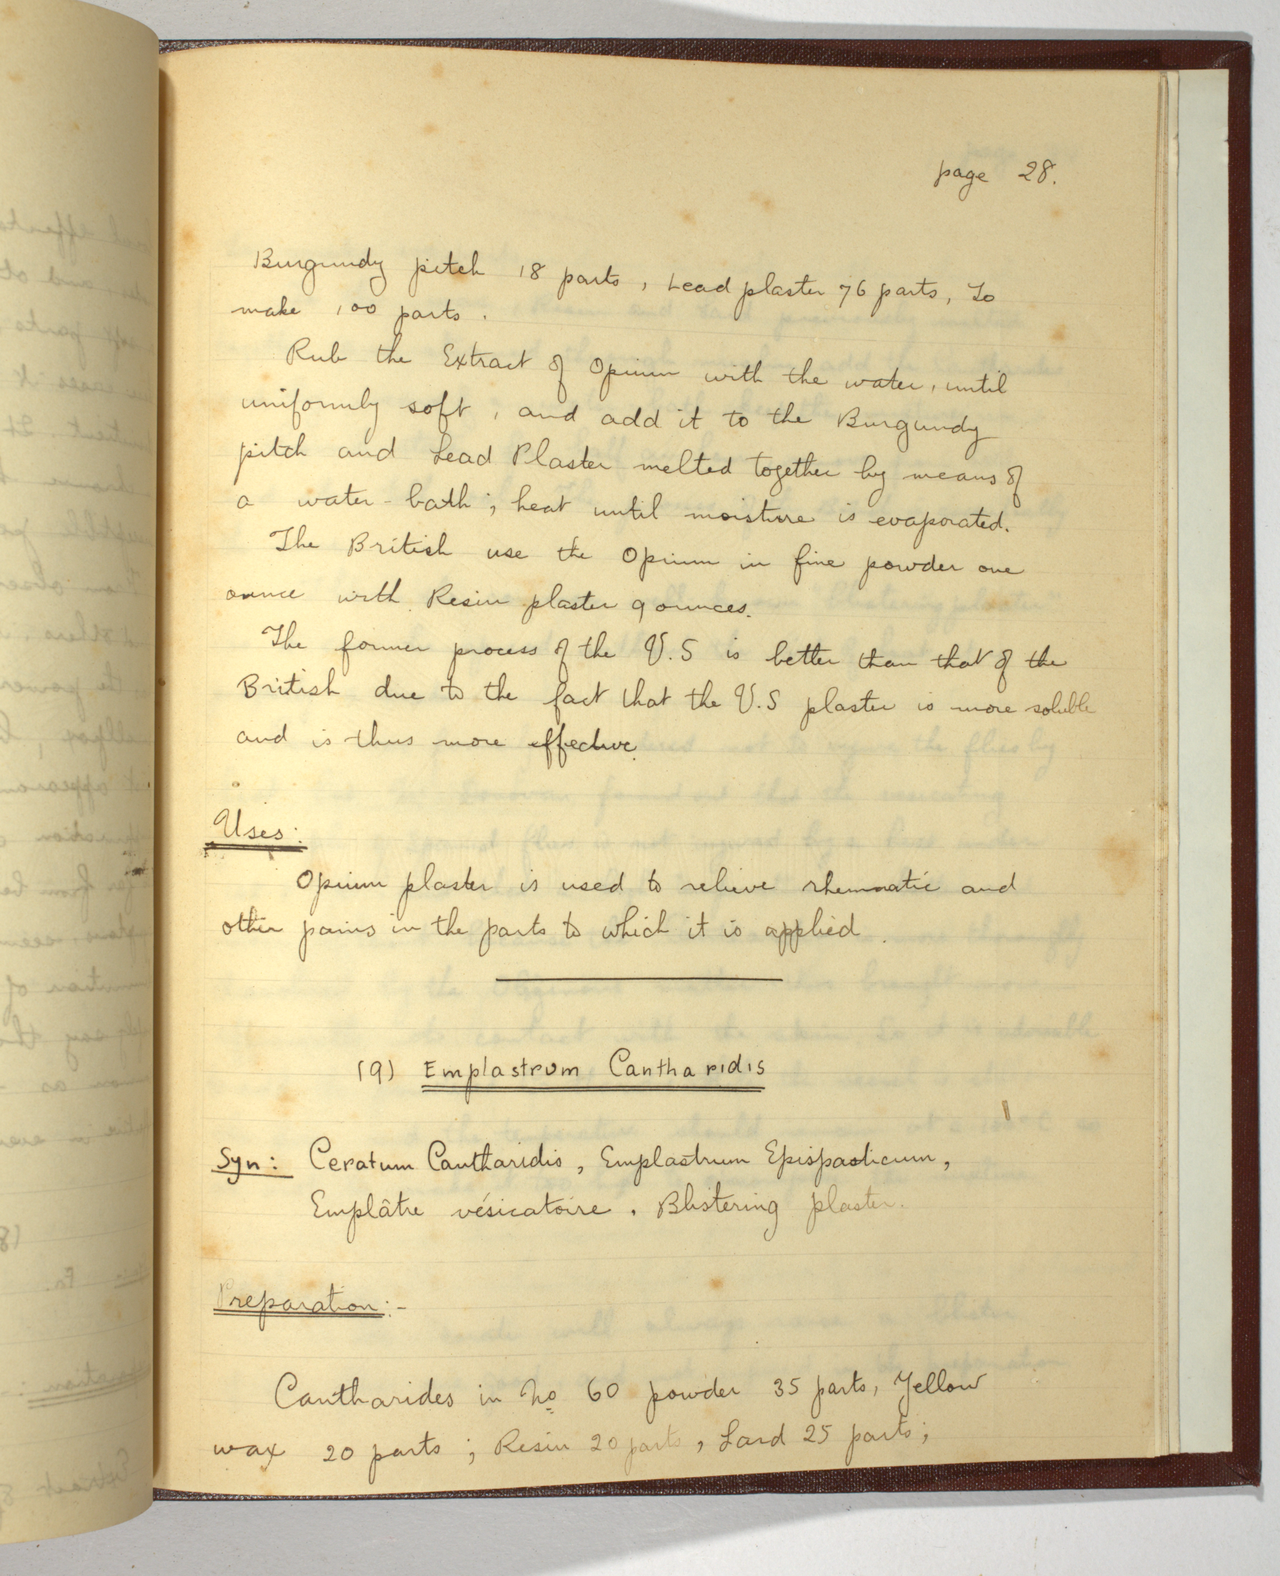 page 28.
Burgundy pitch 18 parts, Lead plaster 76 parts, to
make 100 parts.
Rub the Extract of Opium with the water, until
uniformly soft, and add it to the Burgundy
pitch and Lead Plaster melted together by means of
a water-bath; heat until moisture is evaporated.
The British use the Opium in fine powder one
ounce with Resin plaster 9 ounces.
The former process of the U.S is better than that of the
British due to the fact that the U.S plaster is more soluble
and is thus more effective.
Uses:
Opium plaster is used to relieve rheumatic and
other pains in the parts to which it is applied.
(9) Emplastrum Cantharidis
Syn: Ceratum Cantharidis, Emplastrum Epispasticum,
Emplâtre vésicatoire. Blistering plaster.
Preparation:-
Cantharides in No 60 powder 35 parts, Yellow
wax 20 parts; Resin 20 parts, Lard 25 parts;